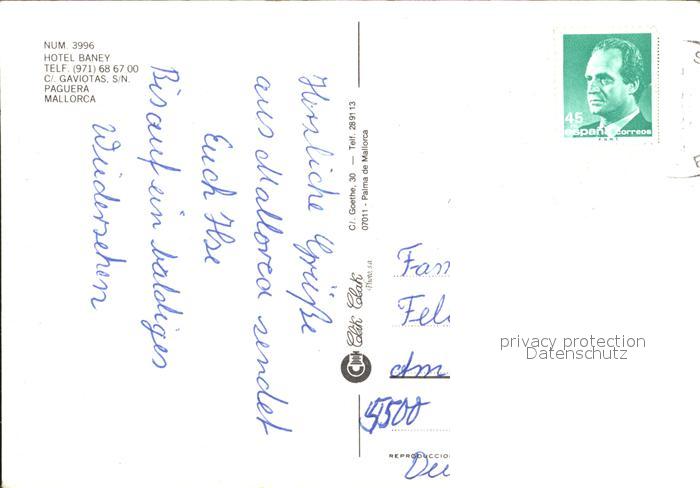 NUM. 3996
HOTEL BANEY
TELF. (971) 68 67 00
C/. GAVIOTAS, S/N.
PAGUERA
MALLORCA
Herzliche Grüße
aus Mallorca sendet
Euch Ilse
Bis auf ein baldiges
Wiedersehen
C/. Goethe, 30 — Telf. 289113
07011 - Palma de Mallorca
Clik Clak
45
españa correos
F.N.M.T.
Fam
Fel
Am
4500
Deu
REPRODUCCIO
privacy protection
Datenschutz